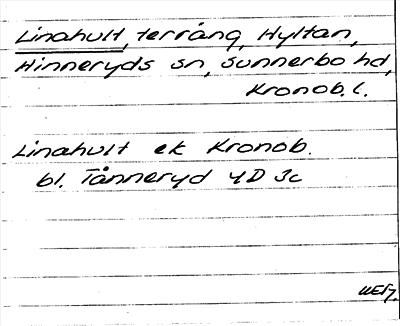 Linahult, terräng, Hyltan,
Hinneryds sn, Sunnerbo hd,
Kronob. l.
Linahult ek Kronob.
bl. Tånneryd 4D 3c